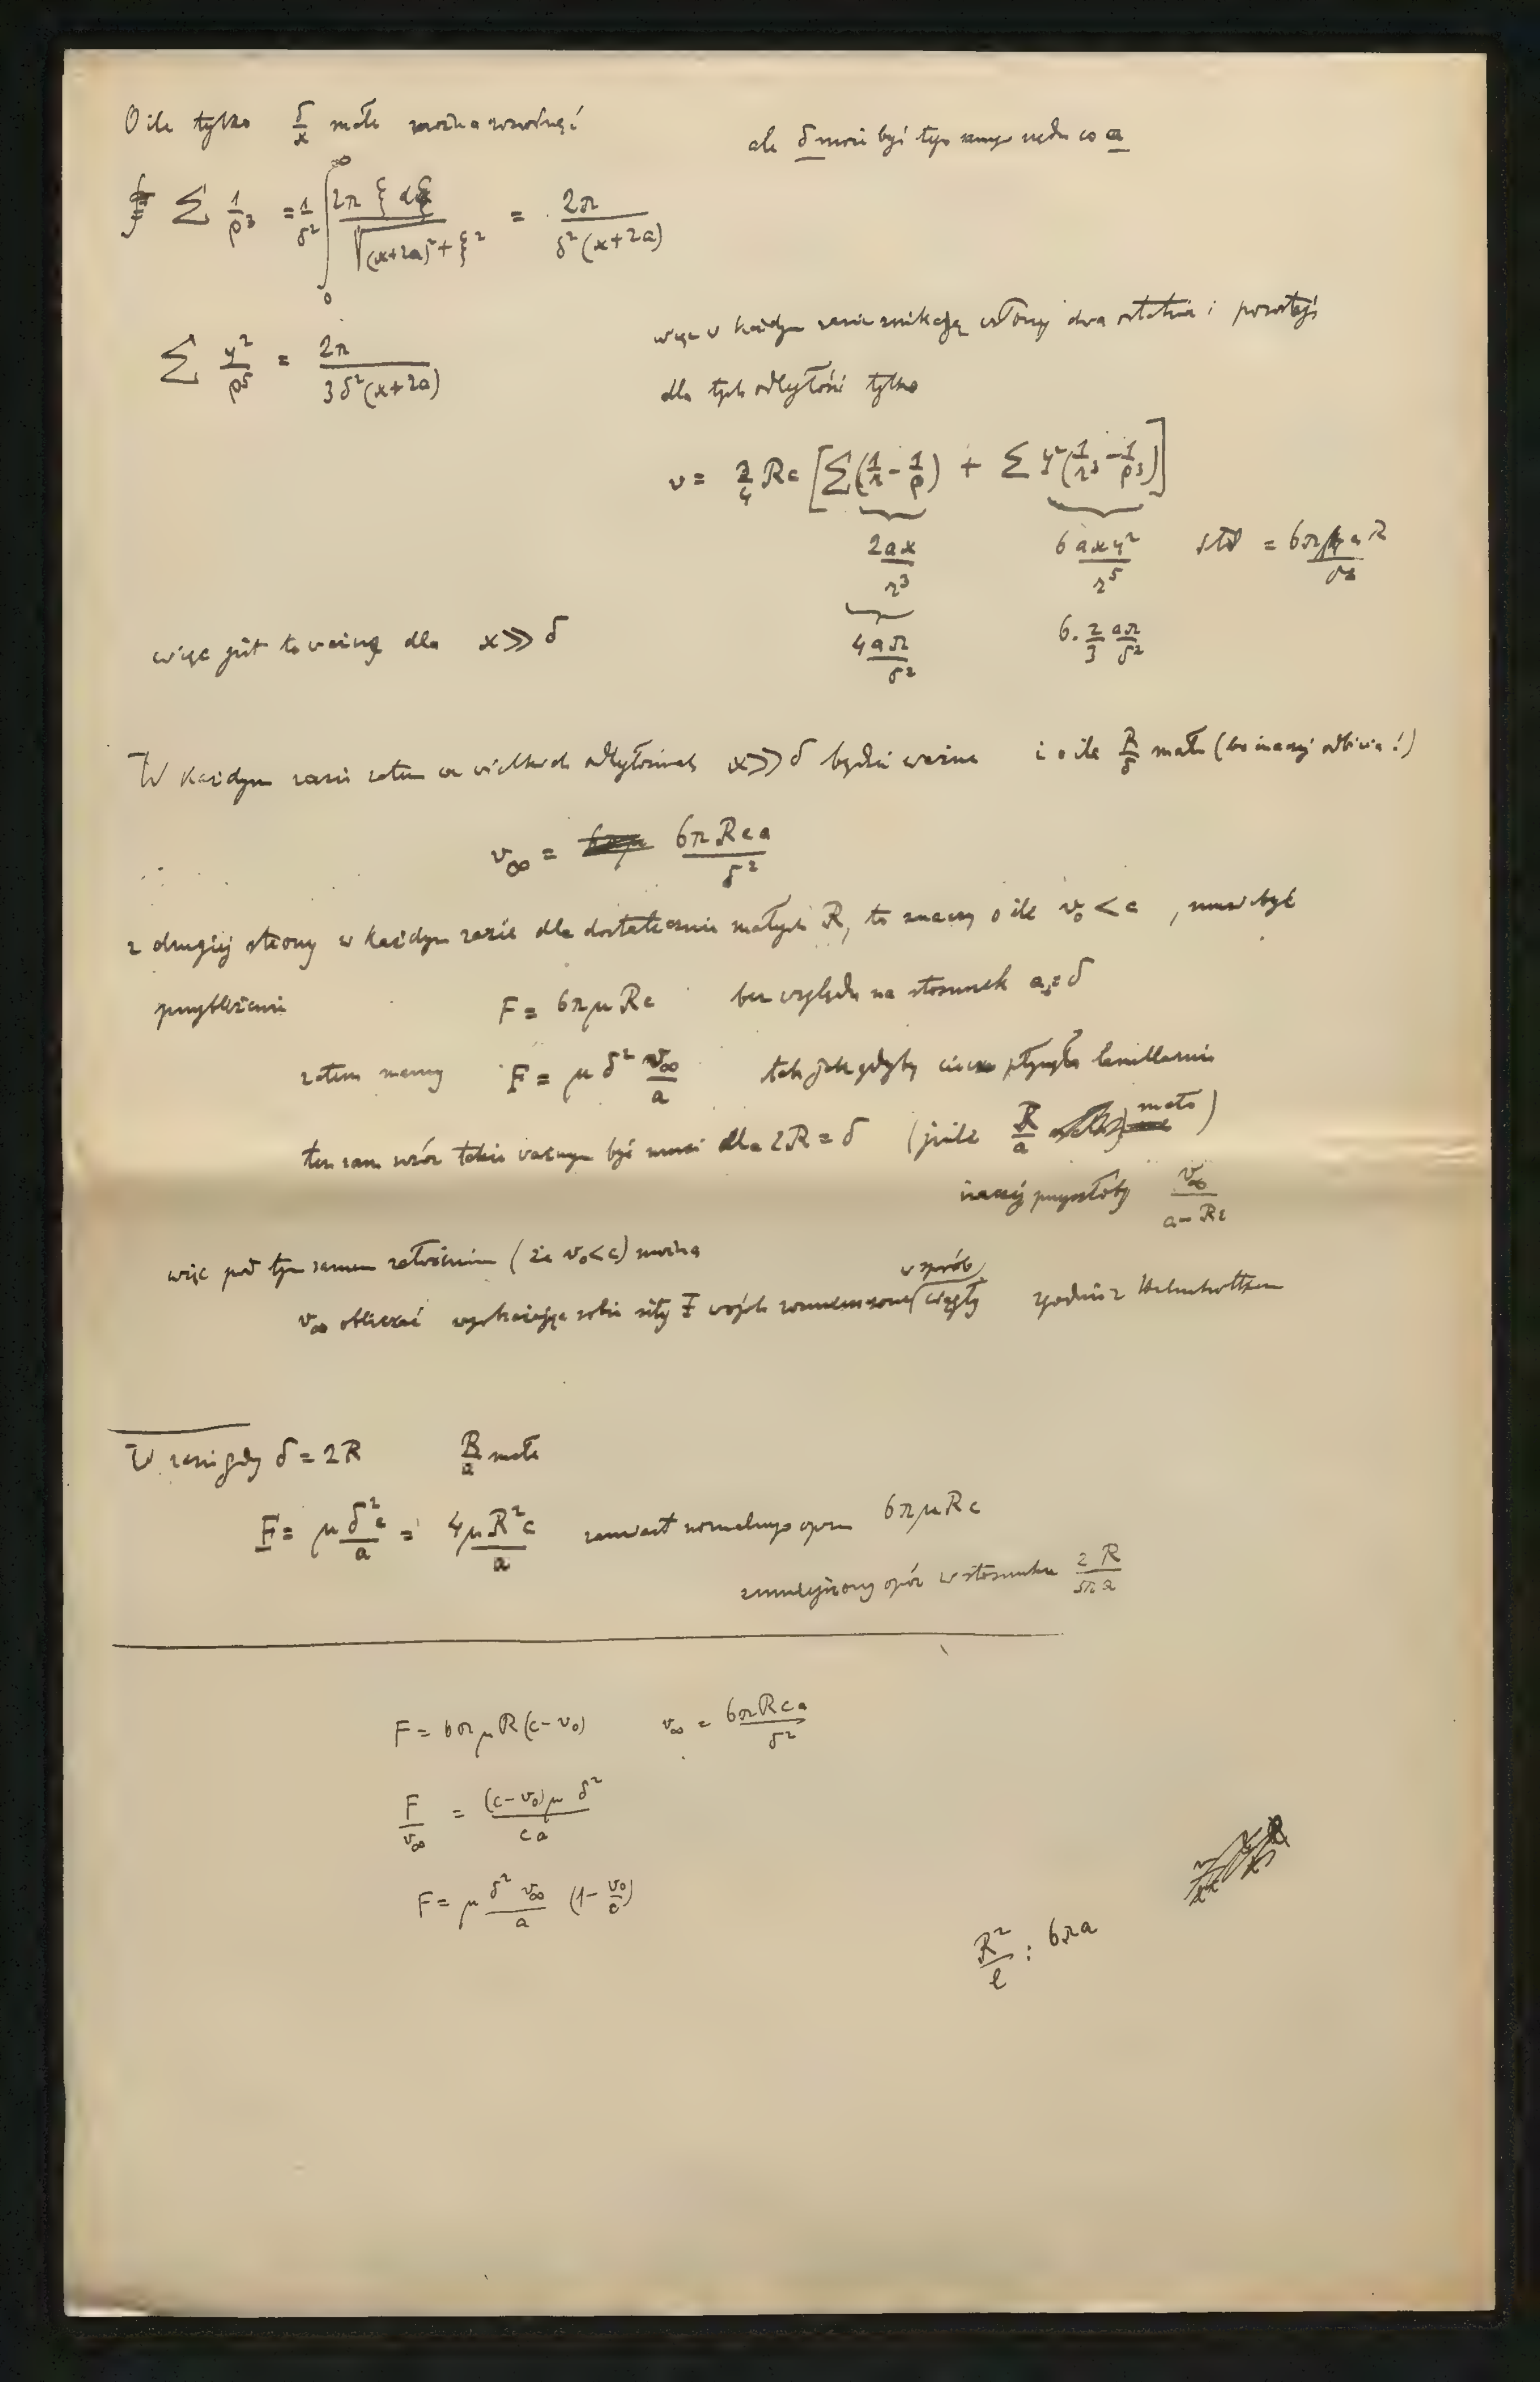 O ile tylko δ/x małe można rozwinąć
ale δ może być tego samego rzędu co a
∑ 1/ρ³ = 1/δ² ∫₀^∞ 2π ξ dξ / √(x+2a)²+ξ² = 2π / δ²(x+2a)
∑ y²/ρ⁵ = 2π / 3δ²(x+2a)
więc w każdym razie znikają człony dwa ostatnie i pozostaje
dla tych odległości tylko
v = 3/4 Rc [∑(1/r − 1/ρ) + ∑ y²(1/r³ − 1/ρ³)]
2ax/r³ 6axy²/r⁵ stąd = 6π a R/δ²
więc jest to ważne dla x ≫ δ
4aπ/δ² 6·2/3 aπ/δ²
W każdym razie zatem w wielkich odległościach x ≫ δ będzie ważne i o ile R/δ małe (bo inaczej odbicia!)
v∞ = 6πRca/δ²
z drugiej strony w każdym razie dla dostatecznie małych R, to znaczy o ile v₀ < c, musi być
w przybliżeniu F = 6πμRc bez względu na stosunek a : δ
zatem mamy F = μδ² v∞/a tak jak gdyby ciecz płynęła lamillarnie
ten sam wzór także ważnym być musi dla 2R = δ (jeśli R/a małe)
inaczej v∞/a−R
więc pod tym samym założeniem (że v₀<c) można
v∞ obliczać wyobrażając sobie siły F w sposób ciągły zgodnie z Helmholtzem
W razie gdy δ = 2R R/a małe
F = μδ²c/a = 4μR²c/a zamiast normalnego oporu 6πμRc
zmniejszony opór w stosunku 2R/3πa
F = 6πμR(c−v₀) v∞ = 6πRca/δ²
F/v∞ = (c−v₀)μδ²/ca
F = μ δ²v∞/a (1−v₀/c)
R²/l : 6πa